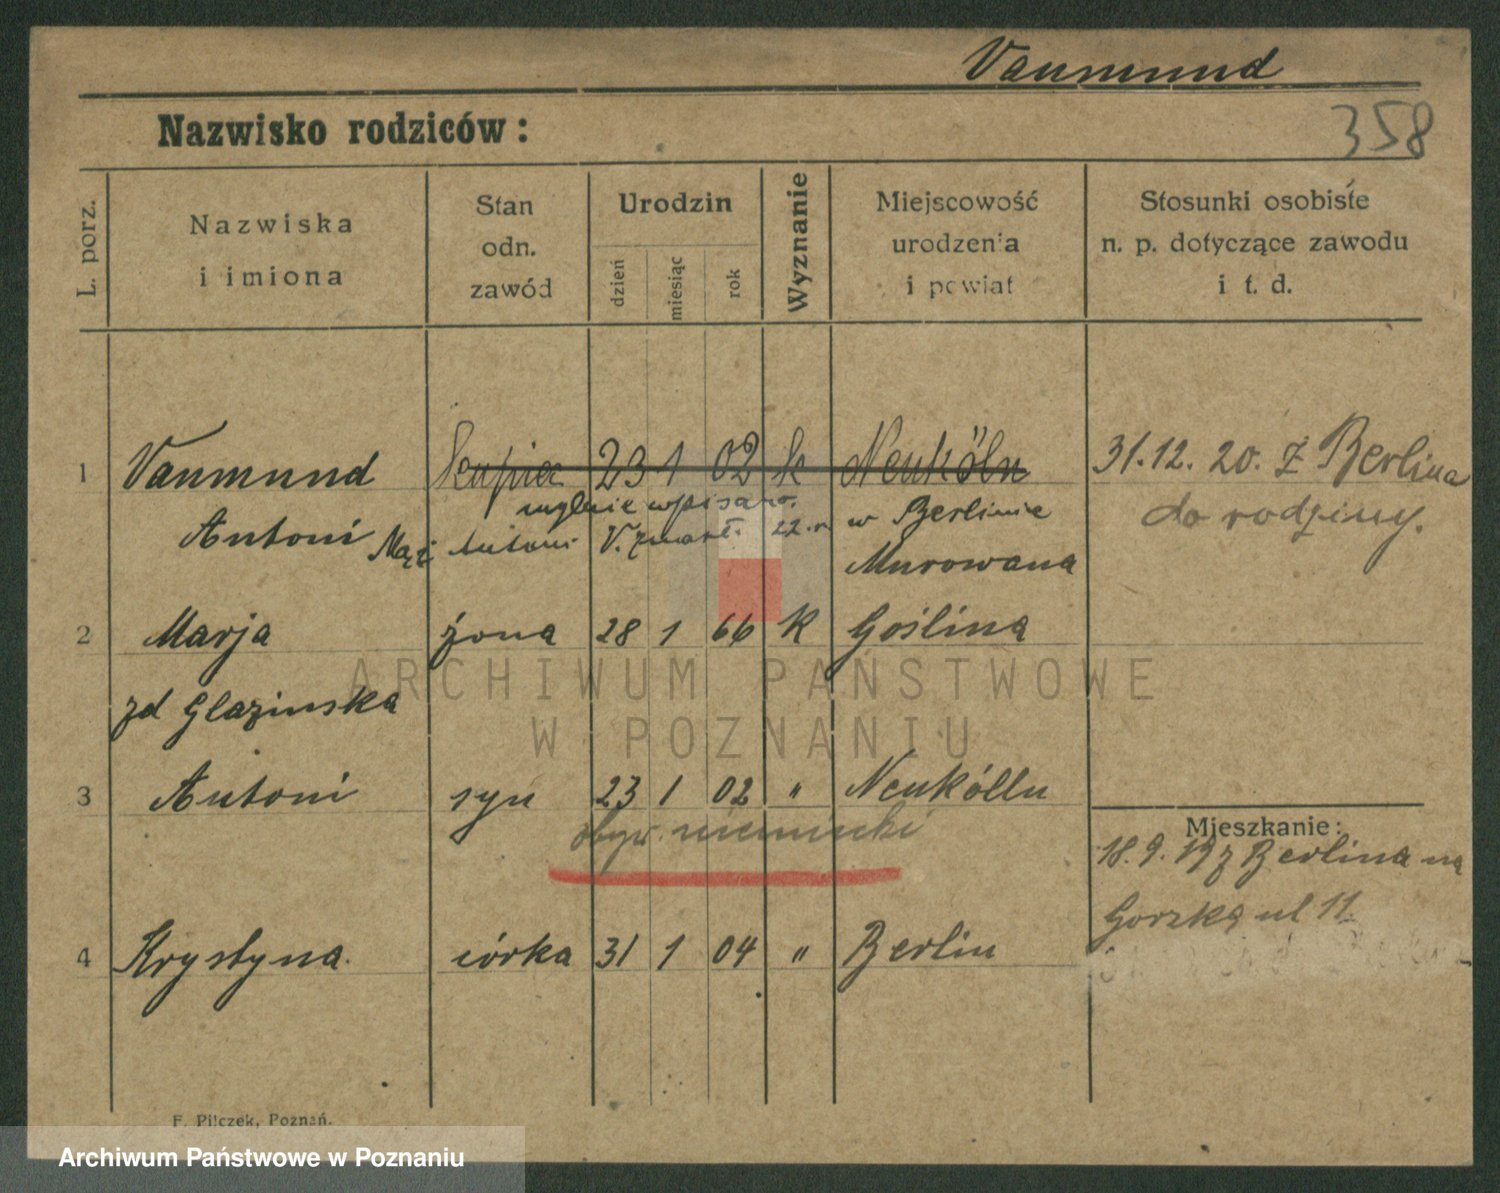 Vaumund
Nazwisko rodziców:
358
L. porz.
Nazwiska
i imiona
Stan
odn.
zawód
Urodzin
dzień
miesiąc
rok
Wyznanie
Miejscowość
urodzenia
i powiat
Stosunki osobiste
n. p. dotyczące zawodu
i t. d.
1 Vaumund kupiec 23 1 02 k Neuköln 31.12. 20. z Berlina
mylnie wpisano.
Antoni Mąż Antoni V. zmarł. 22. r. w Berlinie do rodziny.
Murowana
2 Marja żona 28 1 66 K Goślina
zd Glazinska
3 Antoni syn 23 1 02 " Neukölln
obyw. niemiecki
Mieszkanie:
18. 9. 19 z Berlina na
Gorzką ul 11
4 Krystyna. córka 31 1 04 " Berlin
F. Pilczek, Poznań.
ARCHIWUM PAŃSTWOWE
W POZNANIU
Archiwum Państwowe w Poznaniu